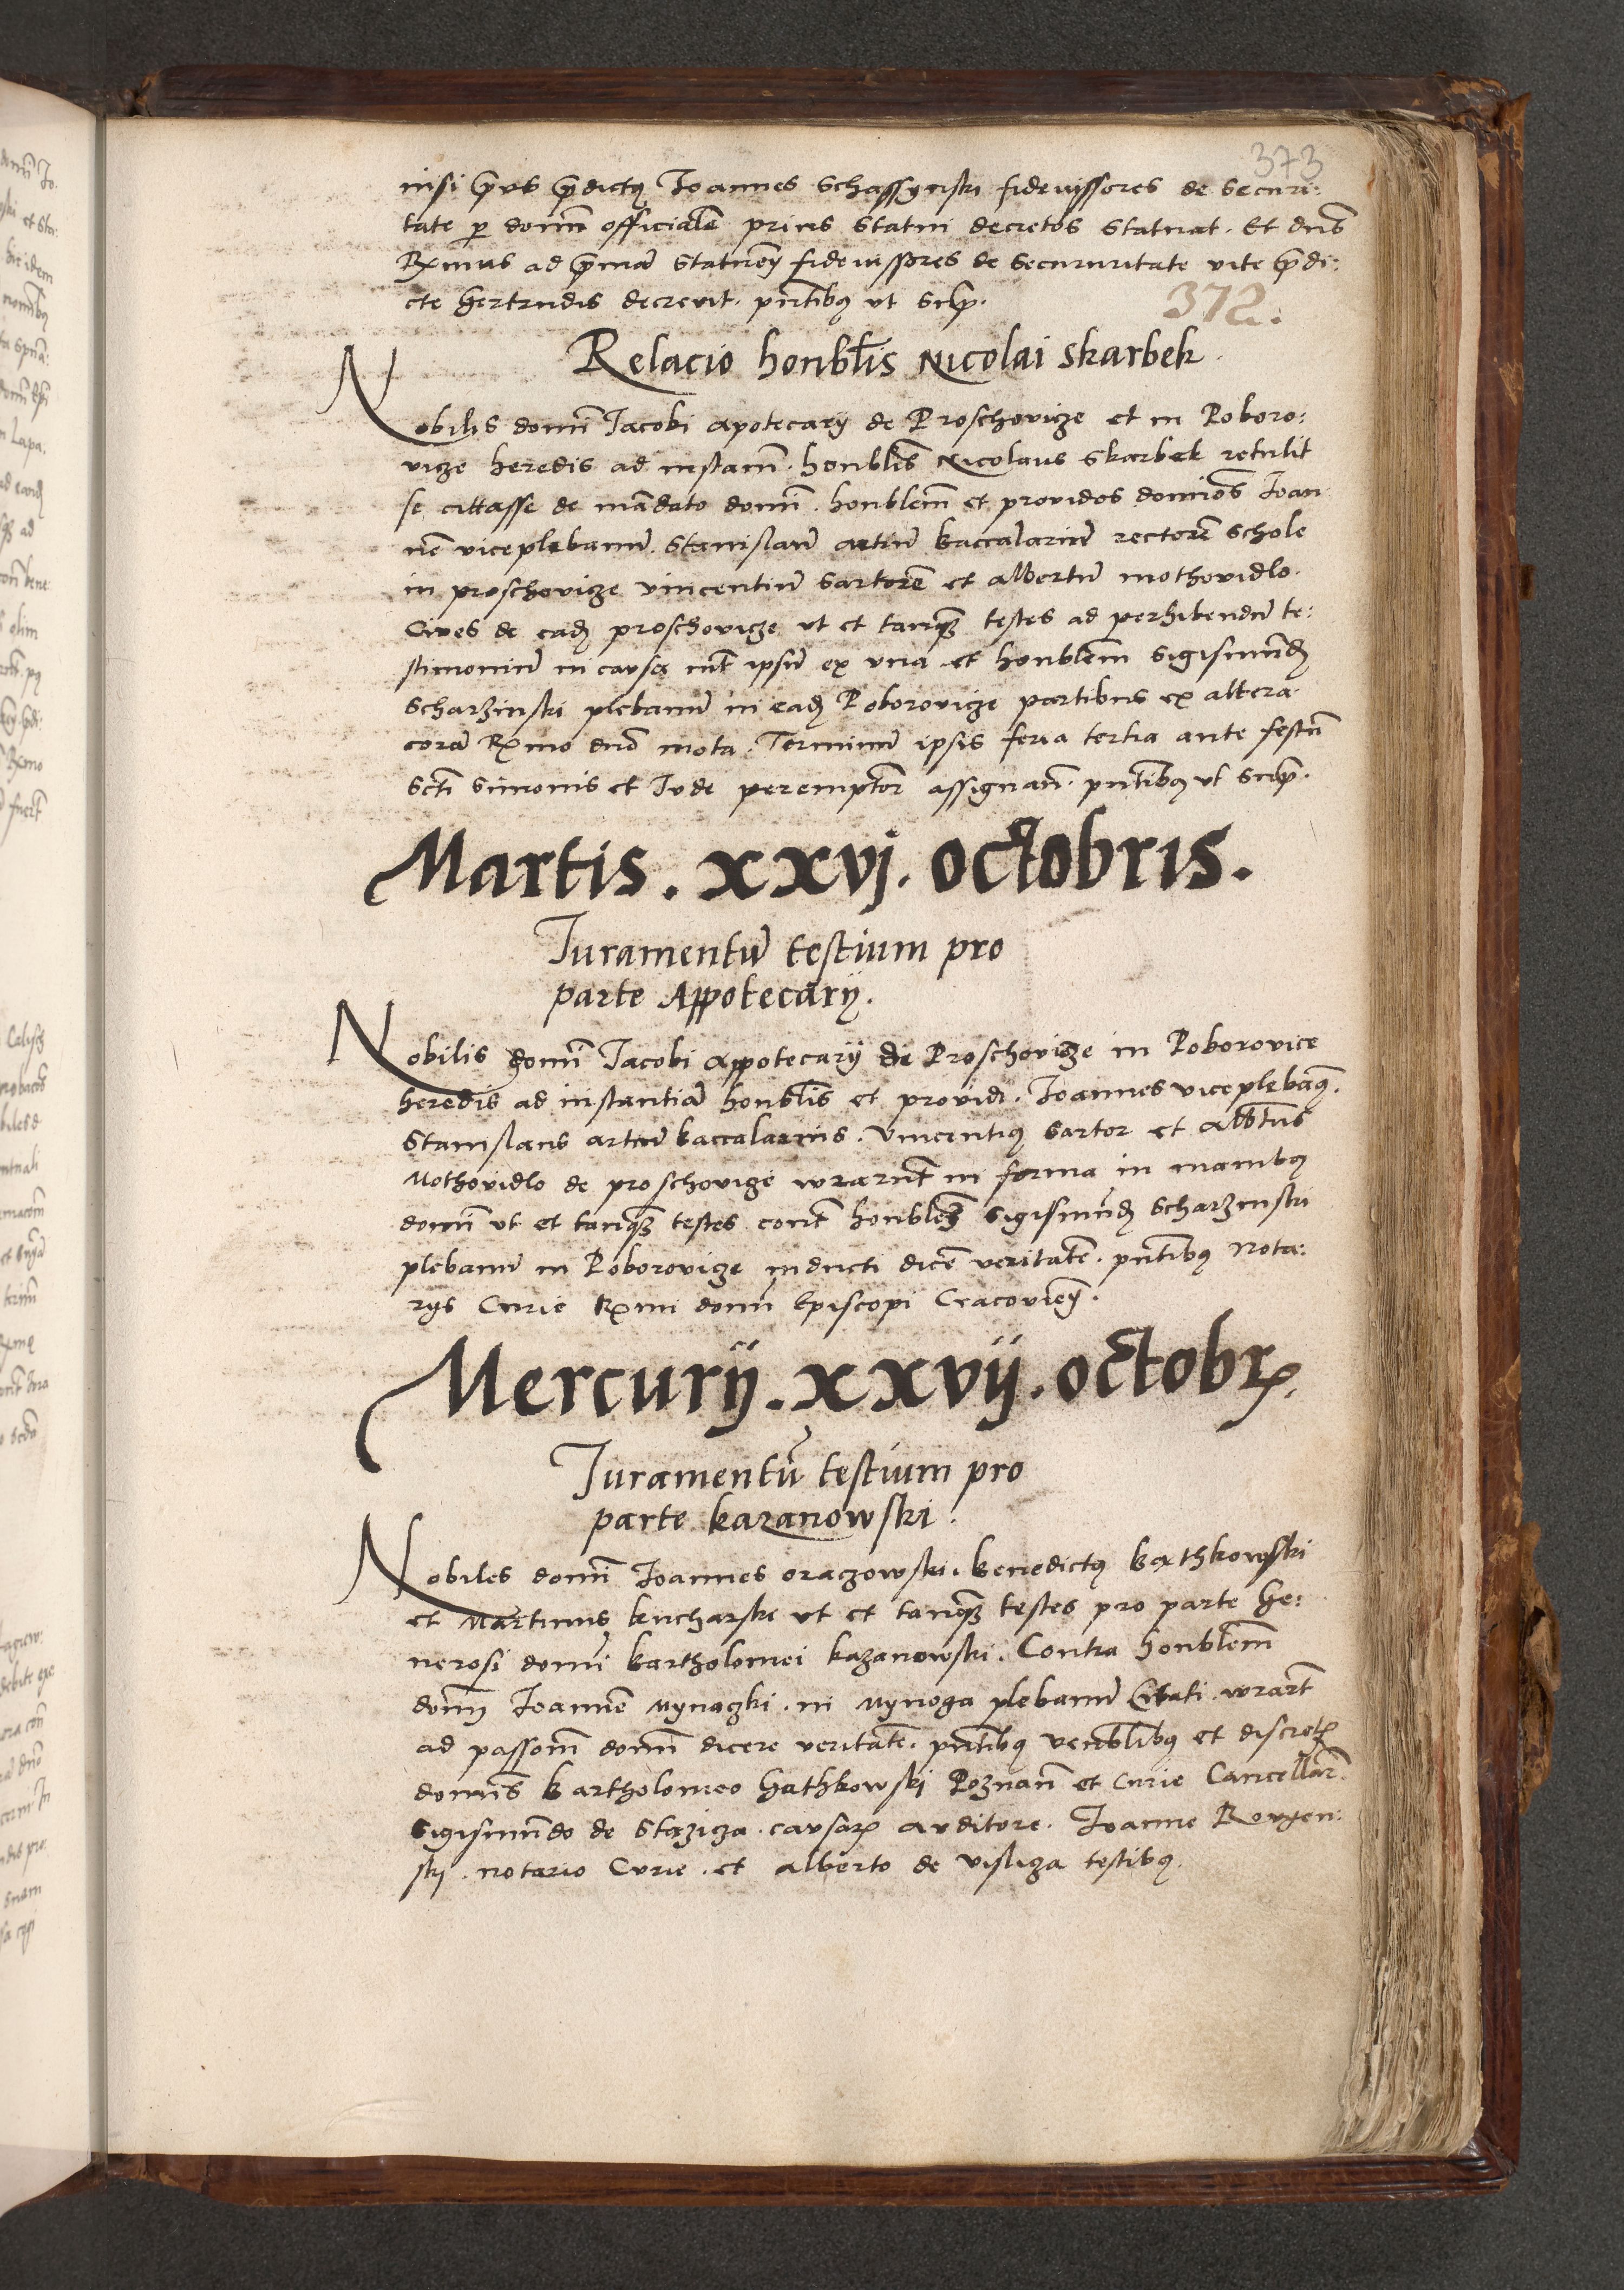 373
nisi prius predictus Joannes Schassynski fideiussores de securi:
tate per domini officialem prius statui decretos statuat. Et dns
Rxmus ad primam statuen fideiussores de securuitate vite predi:
cte Hertrudis decrevit. pntibus ut supra.
372.
Relacio honblis Nicolai Skarbek.
Nobilis domi Jacobi apotecarij de Proschovize et in Poboro:
vize heredis ad instam. honblis Nicolaus Skarbek retulit
se cittasse de mandato domi. honblem et providos dominos Joan
nem viceplebanum. Stanislaum artium baccalarium rectorem schole
in proschovize vincentium Sartorem et albertum mothovidlo.
Cives de eadem proschovize ut et tanquam testes ad perhibendum te:
stimonium in causa int ipsum ex una et honblem Sigismundum
Scharzinski plebanum in eadem Poborovize partibus ex altera.
coram Rxmo dno mota. Terminum ipsis feria tertia ante festum
scti Simonis et Jude peremptor assignan. pntibus ut supra.
Martis. xxvj. octobris.
Juramentum testium pro
parte Appotecarij.
Nobilis domi Jacobi appotecarij de Proschovize in Poborovice
heredis ad instantiam honblis et providi. Joannes viceplebanus.
Stanislaus artium baccalarius. Vincentius Sartor et albtus
Mothovidlo de proschovize iurarunt in forma in manibus
domi ut et tanquam testes cont honblem Sigismundum Scharzinski
plebanum in Poborovize inducti dicere veritatem. pntibus nota:
rijs Curie Rxmi domi Episcopi Cracovien.
Mercurij. xxvij. octobr.
Juramentum testium pro
parte kazanowski.
Nobiles domi Joannes oraczowski. benedictus bathkowski
et Martinus kucharski ut et tanquam testes pro parte Ge:
nerosi domi bartholomei kazanowski. Contra honblem
domi Joannem Mynoczki. in Mynoga plebanum Citati. iurart
ad passom domi dicere veritatem. pntibus venblibus et discretis
domis bartholomeo Gathkowski Poznan et Curie Cancellar.
Sigismundo de Stazicza. causar auditore. Joanne Rougen:
ski. notario Curie. et alberto de visliza testibus.